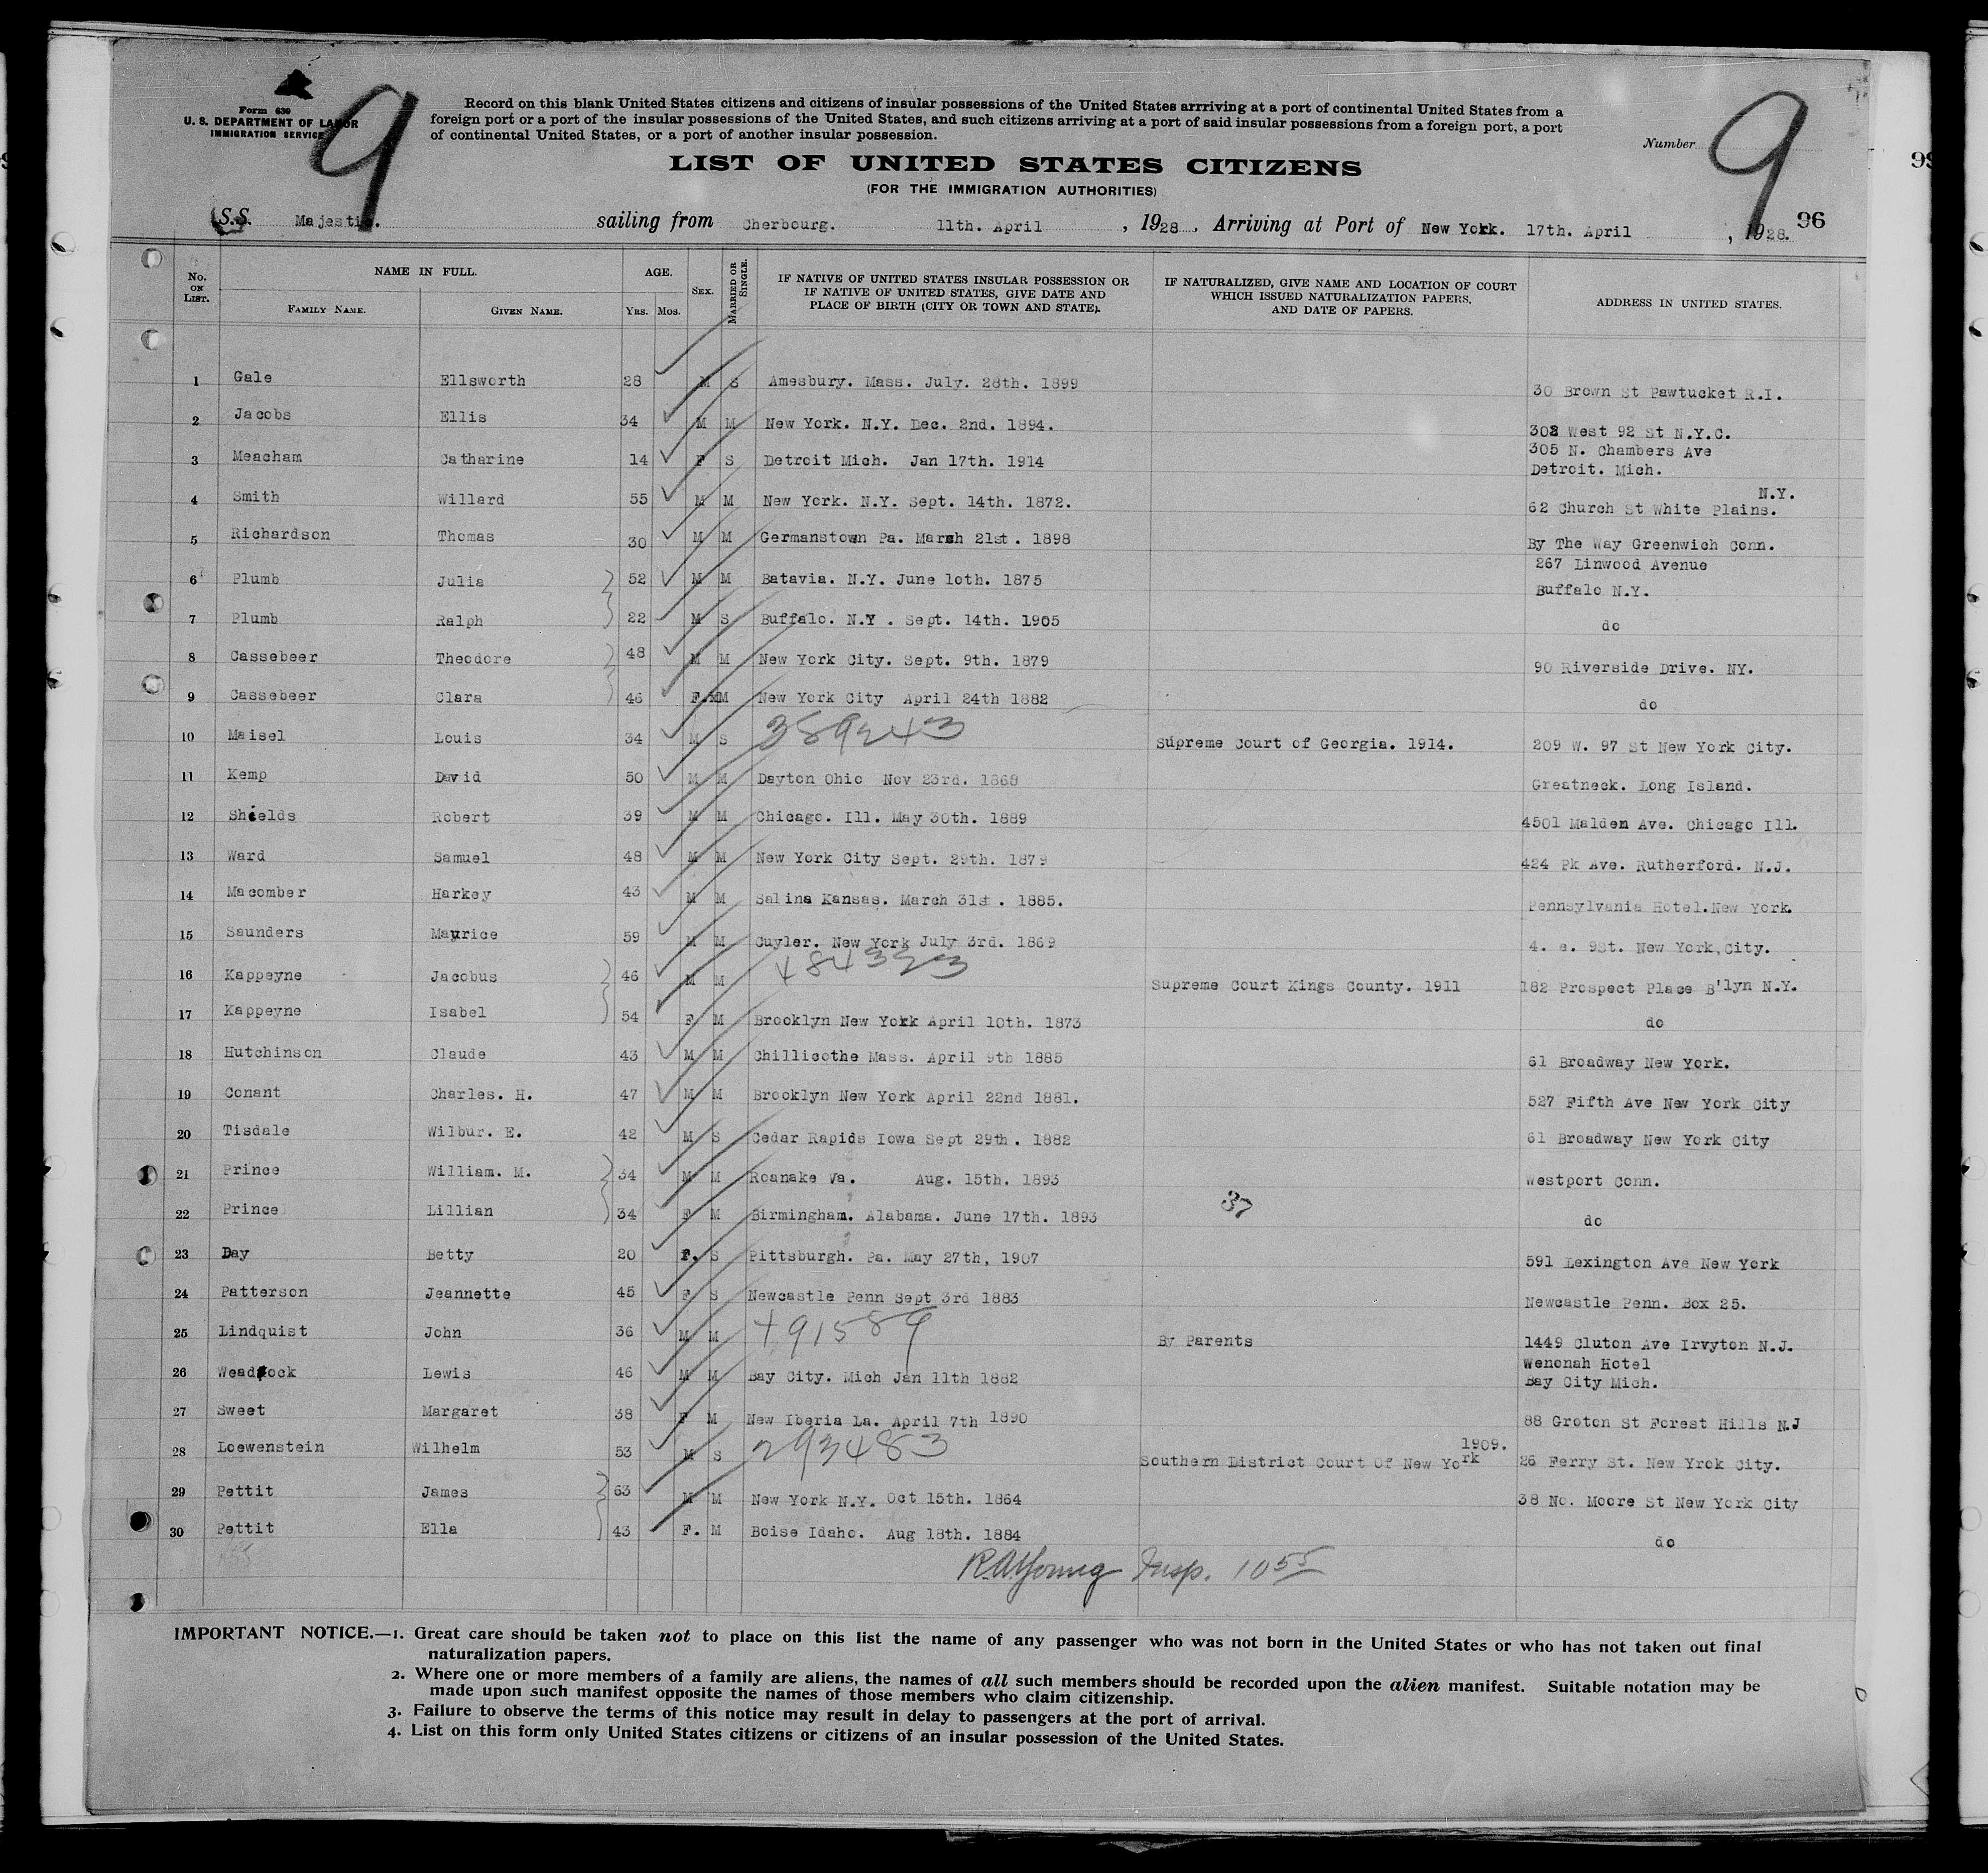 Form 630
U. S. DEPARTMENT OF LABOR
IMMIGRATION SERVICE
9
Record on this blank United States citizens and citizens of insular possessions of the United States arrriving at a port of continental United States from a
foreign port or a port of the insular possessions of the United States, and such citizens arriving at a port of said insular possessions from a foreign port, a port
of continental United States, or a port of another insular possession.
Number 9
LIST OF UNITED STATES CITIZENS
(FOR THE IMMIGRATION AUTHORITIES)
S.S. Majestic. sailing from Cherbourg. 11th. April , 1928 , Arriving at Port of New York. 17th. April , 1928. 96
No. ON LIST. NAME IN FULL. FAMILY NAME. GIVEN NAME. AGE. YRS. MOS. SEX. MARRIED OR SINGLE. IF NATIVE OF UNITED STATES INSULAR POSSESSION OR IF NATIVE OF UNITED STATES, GIVE DATE AND PLACE OF BIRTH (CITY OR TOWN AND STATE). IF NATURALIZED, GIVE NAME AND LOCATION OF COURT WHICH ISSUED NATURALIZATION PAPERS, AND DATE OF PAPERS. ADDRESS IN UNITED STATES.
1 Gale Ellsworth 28 M S Amesbury. Mass. July. 28th. 1899 30 Brown St Pawtucket R.I.
2 Jacobs Ellis 34 M M New York. N.Y. Dec. 2nd. 1894. 302 West 92 St N.Y.C.
3 Meacham Catharine 14 F S Detroit Mich. Jan 17th. 1914 305 N. Chambers Ave
Detroit. Mich.
4 Smith Willard 55 M M New York. N.Y. Sept. 14th. 1872. 62 Church St White Plains. N.Y.
5 Richardson Thomas 30 M M Germanstown Pa. March 21st. 1898 By The Way Greenwich Conn.
6 Plumb Julia 52 M M Batavia. N.Y. June 10th. 1875 267 Linwood Avenue
Buffalo N.Y.
7 Plumb Ralph 22 M S Buffalo. N.Y . Sept. 14th. 1905 do
8 Cassebeer Theodore 48 M M New York City. Sept. 9th. 1879 90 Riverside Drive. NY.
9 Cassebeer Clara 46 F. M New York City April 24th 1882 do
10 Maisel Louis 34 M S 389243 Supreme Court of Georgia. 1914. 209 W. 97 St New York City.
11 Kemp David 50 M M Dayton Ohio Nov 23rd. 1868 Greatneck. Long Island.
12 Shields Robert 39 M M Chicago. Ill. May 30th. 1889 4501 Malden Ave. Chicago Ill.
13 Ward Samuel 48 M M New York City Sept. 29th. 1879 424 Pk Ave. Rutherford. N.J.
14 Macomber Harkey 43 M M Salina Kansas. March 31st. 1885. Pennsylvania Hotel.New York.
15 Saunders Maurice 59 M M Cuyler. New York July 3rd. 1869 4. e. 9St. New York,City.
16 Kappeyne Jacobus 46 M M 484323 Supreme Court Kings County. 1911 182 Prospect Place B'lyn N.Y.
17 Kappeyne Isabel 54 F M Brooklyn New York April 10th. 1873 do
18 Hutchinson Claude 43 M M Chillicothe Mass. April 9th 1885 61 Broadway New York.
19 Conant Charles. H. 47 M M Brooklyn New York April 22nd 1881. 527 Fifth Ave New York City
20 Tisdale Wilbur. E. 42 M S Cedar Rapids Iowa Sept 29th. 1882 61 Broadway New York City
21 Prince William. M. 34 M M Roanake Va. Aug. 15th. 1893 Westport Conn.
22 Prince Lillian 34 F M Birmingham. Alabama. June 17th. 1893 37 do
23 Day Betty 20 F. S Pittsburgh. Pa. May 27th, 1907 591 Lexington Ave New York
24 Patterson Jeannette 45 F S Newcastle Penn Sept 3rd 1883 Newcastle Penn. Box 25.
25 Lindquist John 36 M M 491589 By Parents 1449 Cluton Ave Irvyton N.J.
26 Weadock Lewis 46 M M Bay City. Mich Jan 11th 1882 Wenonah Hotel
Bay City Mich.
27 Sweet Margaret 38 F M New Iberia La. April 7th 1890 88 Groton St Forest Hills N.J
28 Loewenstein Wilhelm 53 M S 293483 Southern District Court Of New York 1909. 26 Ferry St. New Yrok City.
29 Pettit James 63 M M New York N.Y. Oct 15th. 1864 38 No. Moore St New York City
30 Pettit Ella 43 F. M Boise Idaho. Aug 18th. 1884 do
R.A. Young Insp. 1055
IMPORTANT NOTICE.—1. Great care should be taken not to place on this list the name of any passenger who was not born in the United States or who has not taken out final
naturalization papers.
2. Where one or more members of a family are aliens, the names of all such members should be recorded upon the alien manifest. Suitable notation may be
made upon such manifest opposite the names of those members who claim citizenship.
3. Failure to observe the terms of this notice may result in delay to passengers at the port of arrival.
4. List on this form only United States citizens or citizens of an insular possession of the United States.